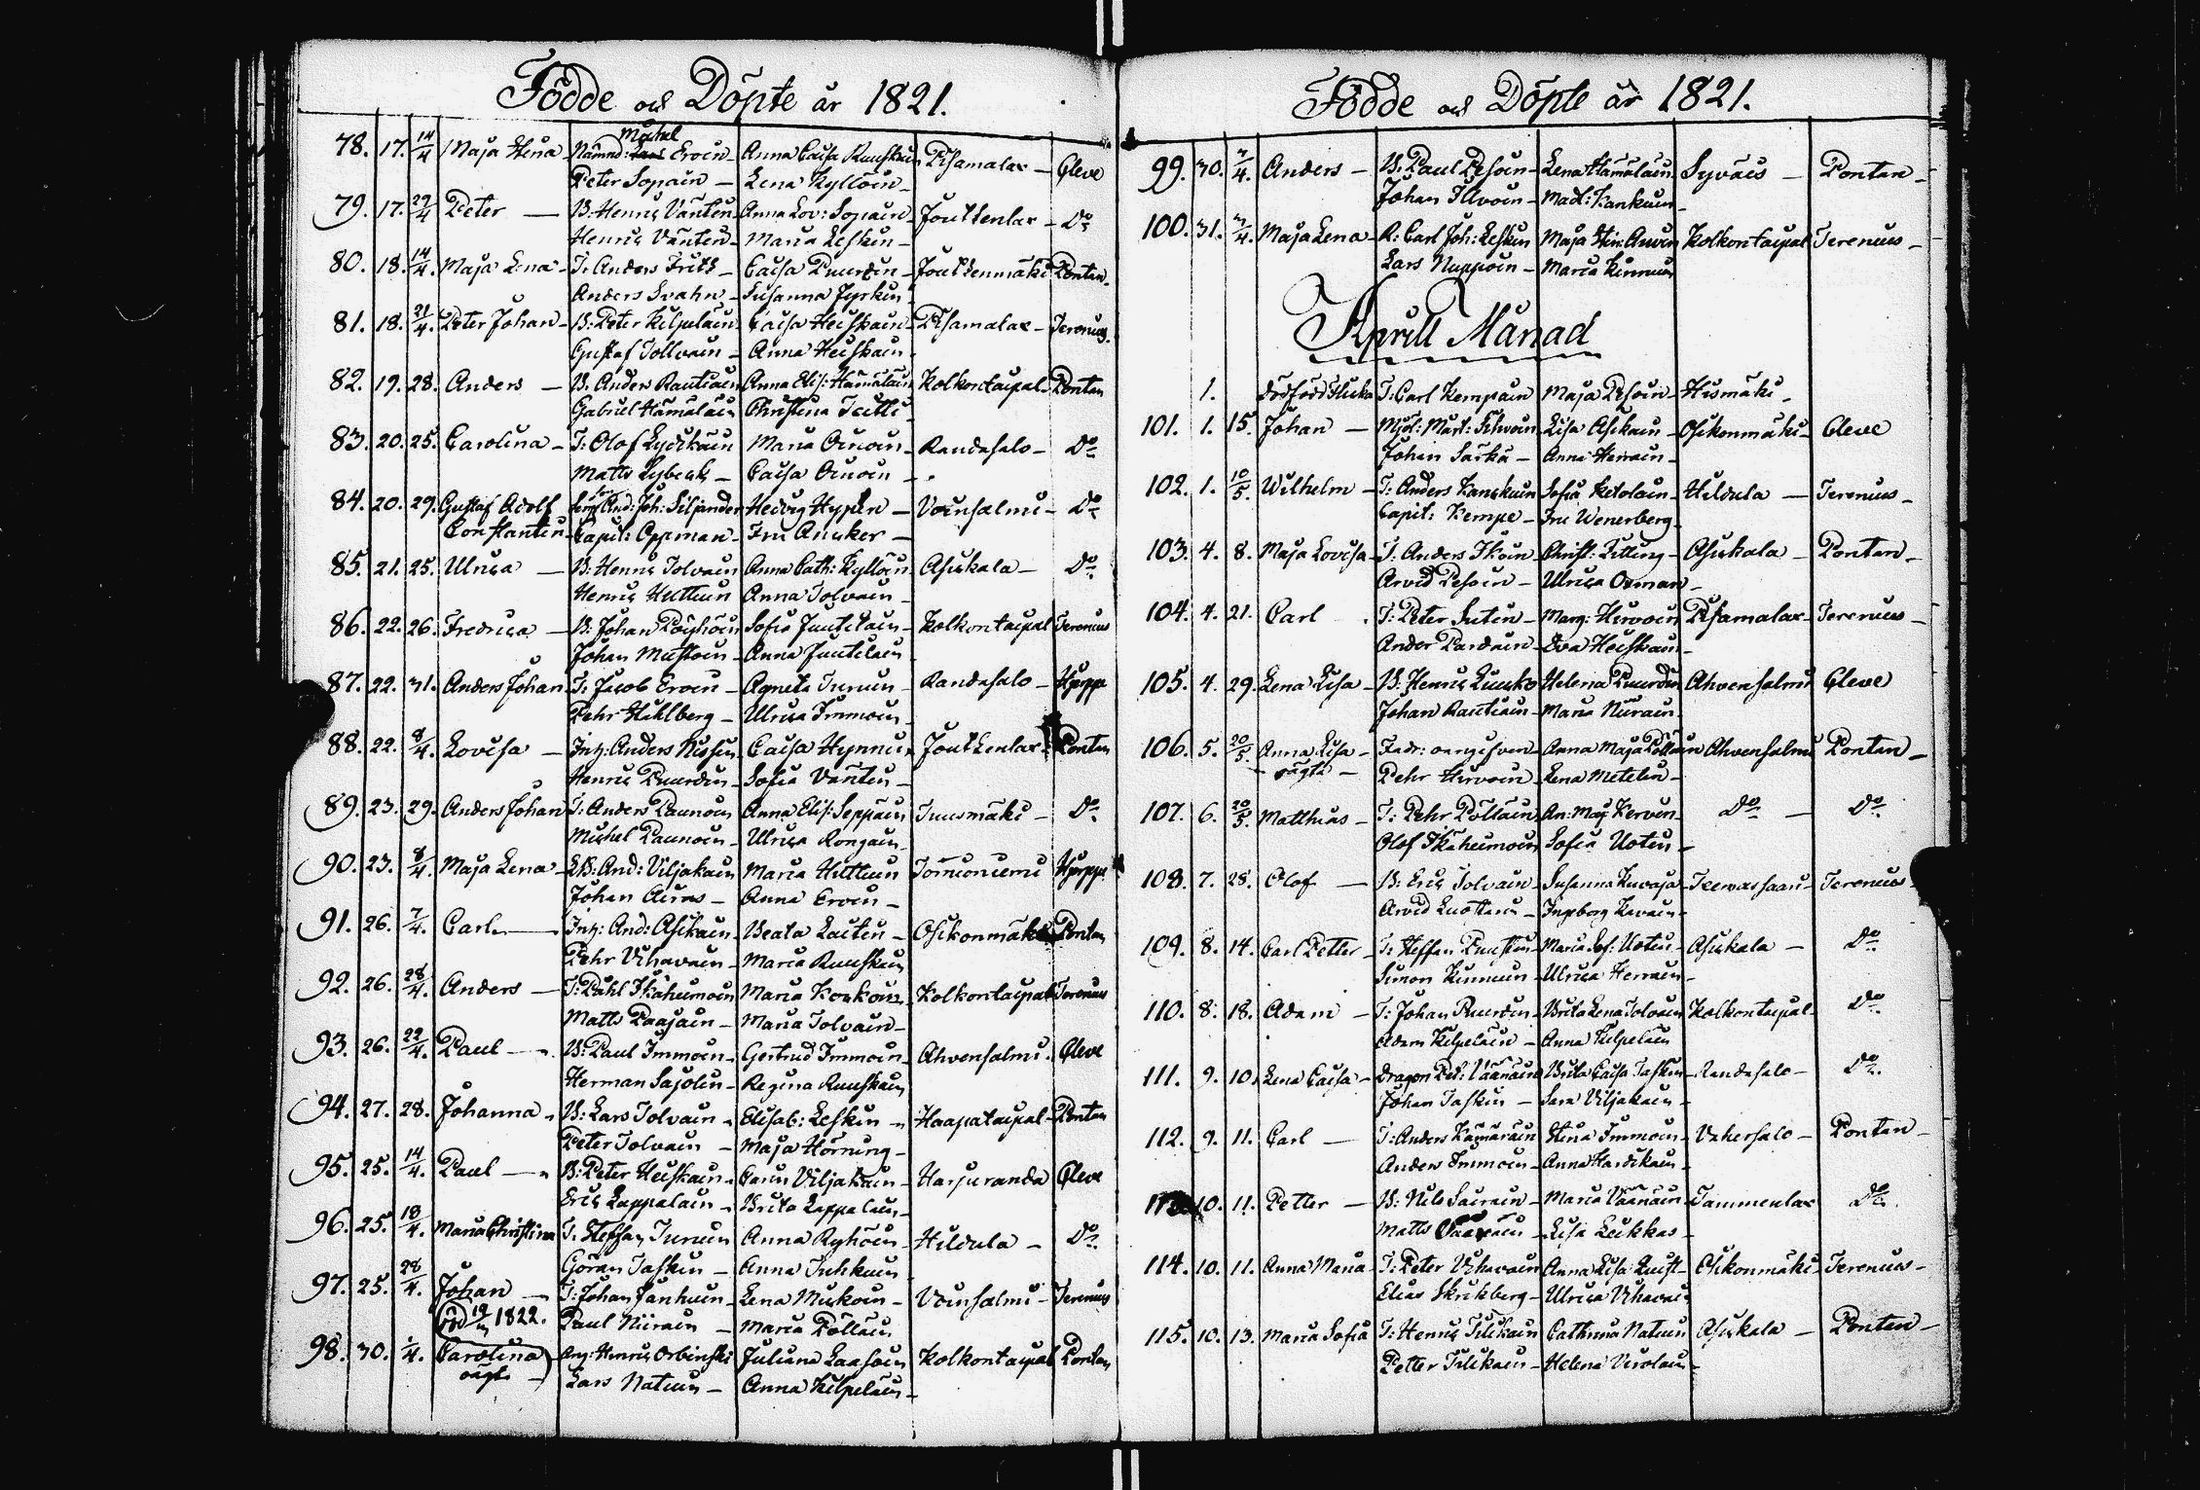 Födde och Döpte år 1821.
78. 17. 14/4 Maja Stina Michel Nämnd: Eroin Anna Caisa Ruuskain Pisamalax Cleve
Peter Sopain Lena Kyllöin
79. 17. 22/4 Peter B: Henric Väntin Anna Lov: Sopain Joutsenlax Do
Henric Väntin Maria Leskin
80. 18. 14/4 Maja Lena T: Anders Frits Caisa Puurtin Joutsenmäki Pontan
Anders Svahn Susanna Jyrkin
81. 18. 21/4 Peter Johan B: Peter Kilpeläin Caisa Heiskain Pisamalax Terenius
Gustaf Tollvain Anna Heiskain
82. 19. 28. Anders B. Anders Rautiain Anna Elis: Hämäläin Kolkontaipal Pontan
Gabriel Hämäläin Christina Teitti
83. 20. 25. Carolina T: Olof Lydikäin Maria Oinoin Randasalo Do
Matts Sybeck Caisa Oinoin
84. 20. 29. Gustaf Adolf And: Joh: Siljander Hedvig Hyppen Voinsalmi Do
Constantin Capit: Oppman Fru Aneker
85. 21. 25. Ulrica B: Henric Tolvain Anna Cath: Kyllöin Asikala Do
Henric Huttuin Anna Tolvain
86. 22. 26. Fredrica B: Johan Pöyhöin Sofia Juutilain Kolkontaipal Terenius
Johan Mustoin Anna Juutilain
87. 22. 31. Anders Johan T: Jacob Eroin Agneta Turuin Randasalo Hjerppe
Pehr Stihlberg Ulrica Immoin
88. 22. 8/4 Lovisa Inh: Anders Nissin Caisa Hynnin Joutsenlax Pontan
Henric Puurtin Sofia Väntin
89. 23. 29. Anders Johan T: Anders Paunoin Anna Elis: Seppäin Tuusmäki Do
Michel Paunoin Ulrica Rongain
90. 23. 8/4 Maja Lena And: Viljakain Maria Huttuin Tornioniemi Hjerppe
Johan Auvas Anna Eroin
91. 26. 7/4 Carl Inh: And: Asikain Beata Laitin Osikonmäki Pontan
Pehr Vihavain Maria Ruuskain
92. 26. 28/4 Anders T: Påhl Ikäheimoin Maria Korkoin Kolkontaipal Terenius
Matts Paajain Maria Tolvain
93. 26. 22/4 Paul B: Paul Immoin Gertrud Immoin Ahvensalmi Cleve
Herman Sajolin Regina Ruuskain
94. 27. 28. Johanna B: Lars Tolvain Elisab: Leskin Haapataipal Pontan
Peter Tolvain Maja Hörning
95. 25. 14/4 Paul B: Peter Heiskain Carin Viljakain Harjuranda Cleve
Eric Lappalain Brita Lappalain
96. 25. 18/4 Maria Christina T: Steffan Turuin Anna Ryhöin Hildula Do
Göran Taskin Anna Tuhkuin
97. 25. 28/4 Johan T: Johan Janhuin Lena Miskoin Voinsalmi Terenius
död 1822. Paul Niirain Maria Pöllain
98. 30. 1/4 Carolina Henric Orbinski Juliana Laasoin Kolkontaipal Pontan
oägta Lars Natuin Anna Kilpeläin
Födde och Döpte år 1821.
99. 30. 7/4 Anders B: Paul Pesoin Lena Hämäläin Syväis Pontan
Johan Ilvoin Mad: Kankuin
100. 31. 7/4 Maja Lena R: Carl Joh: Leskin Maja Stin: Auvin Kolkontaipal Terenius
Lars Nuppoin Maria Kinnuin
Aprill Månad
1. dödfödd flicka T: Carl Kempain Maja Pesoin Hismäki
101. 1. 15. Johan Mjöl: Mårt: Silvoin Lisa Asikain Osikonmäki Cleve
Johan Särkä Anna Herrain
102. 1. 10/5 Wilhelm T: Anders Kanskuin Sofia Ketolain Hildula Terenius
Capit: Kempe Fru Wenerberg
103. 4. 8. Maja Lovisa T. Anders Ikoin Christ: Litting Asikala Pontan
Arvid Pesoin Ulrica Osman
104. 4. 21. Carl T: Peter Sutin Marg: Hirvoin Pisamalax Terenius
Ander Pardain Eva Heiskain
105. 4. 29. Lena Lisa B. Henric Luusko Helena Puurtin Ahvensalmi Cleve
Johan Rautiain Maria Niirain
106. 5. 20/5 Anna Lisa Fadr: oangifven Anna Maja Pöllain Ahvensalmi Pontan
oägta Pehr Hirvoin Lena Metelin
107. 6. 20/5 Matthias T: Pehr Pöllain An: Maj: Kervin Do Do
Olof Ikäheimoin Sofia Uotin
108. 7. 28. Olof B: Eric Tolvain Susanna Kuvaja Teemassaari Terenius
Arvid Luottain Ingeborg Kavain
109. 8. 14. Carl Petter T: Steffan Puustin Maria Sof: Uotin Asikala Do
Simon Kinnuin Ulrica Herrain
110. 8. 18. Adam T: Johan Puurtin Brita Lena Tolvain Kolkontaipal Do
Adam Kilpeläin Anna Kilpeläin
111. 9. 10. Lena Caisa Dragon Pet: Väänäin Brita Caisa Taskin Randasalo Do
Johan Taskin Sara Viljakain
112. 9. 11. Carl T: Anders Kämäräin Stina Immoin Vahersalo Pontan
Anders Immoin Anna Hardikain
113. 10. 11. Petter B: Nils Sairain Maria Väänäin Tammenlax Do
Matts Väänäin Lisa Leikkas
114. 10. 11. Anna Maria T: Peter Vihavain Anna Lisa Quist Osikonmäki Terenius
Elias Skrikberg Ulrica Vihavain
115. 10. 13. Maria Sofia T: Henric Tiikain Cathrina Natuin Asikala Pontan
Petter Tiikain Helena Virolain